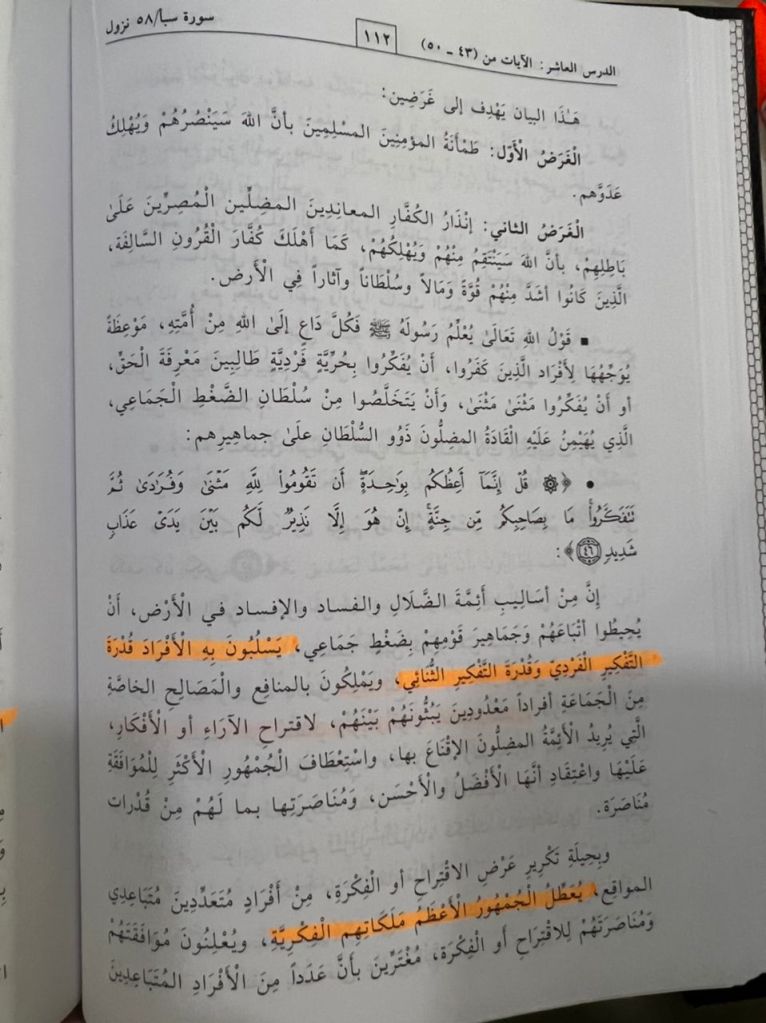 الدرس العاشر: الآيات من (٤٣ - ٥٠)
١١٢
سورة سبأ/٥٨ نزول
هَـٰذَا البيان يَهْدِف إلى غَرَضِين:
الْغَرَضُ الْأَوَّل: طَمْأَنَةُ المؤمِنِينَ المسْلِمِينَ بأنَّ اللهَ سَيَنْصُرُهُمْ وَيُهْلِكُ
عَدَوَّهم.
الْغَرَضُ الثاني: إنْذَارُ الكُفَّارِ المعانِدِينَ المضِلِّين الْمُصِرِّينَ عَلَىٰ
بَاطِلِهِمْ، بأنَّ اللهَ سَيَنْتَقِمُ مِنْهُمْ وَيُهْلِكُهُمْ، كَمَا أَهْلَكَ كُفَّارَ الْقُرُونِ السَّالِفَة،
الَّذِينَ كَانُوا أشَدَّ مِنْهُمْ قُوَّةً وَمَالاً وسُلْطَاناً وآثاراً فِي الْأَرض.
▪ قَوْلُ اللهِ تَعَالَىٰ يُعَلِّمُ رَسُولَهُ ﷺ فَكُلَّ دَاعٍ إلَىٰ اللهِ مِنْ أُمَّتِهِ، مَوْعِظَةً
يُوَجِّهُهَا لِأَفْرَادِ الَّذِينَ كَفَرُوا، أَنْ يُفَكِّرُوا بِحُرِّيَّةٍ فَرْدِيَّةٍ طَالِبِينَ مَعْرِفَةَ الْحَقِّ،
أو أَنْ يُفَكِّرُوا مَثْنَىٰ مَثْنَىٰ، وَأَنْ يَتَخَلَّصُوا مِنْ سُلْطَانِ الضَّغْطِ الْجَمَاعِي،
الَّذِي يُهَيْمِنُ عَلَيْهِ الْقَادَةُ المضِلُّونَ ذَوُو السُّلْطَانِ علَىٰ جماهِيرِهم:
• ﴿۞ قُلْ إِنَّمَآ أَعِظُكُم بِوَٰحِدَةٍ أَن تَقُومُوا۟ لِلَّهِ مَثْنَىٰ وَفُرَٰدَىٰ ثُمَّ
تَتَفَكَّرُوا۟ مَا بِصَاحِبِكُم مِّن جِنَّةٍ إِنْ هُوَ إِلَّا نَذِيرٌ لَّكُم بَيْنَ يَدَىْ عَذَابٍ
شَدِيدٍ ٤٦﴾:
إِنَّ مِنْ أسَالِيبِ أَئِمَّةِ الضَّلَالِ والفساد والإفساد في الْأَرْض، أَنْ
يُحِيطُوا أَتْبَاعَهُمْ وَجَمَاهِيرَ قَوْمِهِمْ بِضَغْطٍ جَمَاعي، يَسْلُبُونَ بِهِ الْأَفْرَادَ قُدْرَةَ
التَّفْكِيرِ الْفَرْدِيّ وَقُدْرَةَ التَّفْكِيرِ الثُّنَائِي، ويَمْلِكُونَ بالمنافِعِ والْمَصَالِحِ الخاصَّةِ
مِنَ الْجَمَاعَةِ أفراداً مَعْدُودِينَ يَبُثُّونَهُمْ بَيْنَهُمْ، لاقتراحِ الآرَاءِ أو الْأَفْكَارِ،
الَّتِي يُرِيدُ الْأَئِمَّةُ المضِلُّونَ الإقْنَاعَ بها، واسْتِعْطَافَ الْجُمْهُورِ الْأَكْثَرِ لِلْمُوَافَقَةِ
عَلَيْهَا واعْتِقَادِ أنَّهَا الْأَفْضَلُ وَالْأَحْسَن، وَمُنَاصَرَتِها بما لَهُمْ مِنْ قُدْرات
مُنَاصَرَة.
وبِحِيلَةِ تَكْرِيرِ عَرْضِ الاقْتِراحِ أو الْفِكْرَة، مِنْ أَفْرَادٍ مُتَعَدِّدِينَ مُتَبَاعِدِي
المواقِعِ، يُعَطِّلُ الْجُمْهُورُ الْأَعْظَمُ مَلَكَاتِهِم الْفِكْرِيَّةِ، ويُعْلِنُونَ مُوَافَقَتَهُمْ
وَمُنَاصَرَتَهُمْ لِلاقْتِرَاحِ أو الْفِكْرَة، مُغْتَرِّينَ بأنَّ عَدَداً مِنَ الْأَفْرَادِ المُتَبَاعِدِينَ